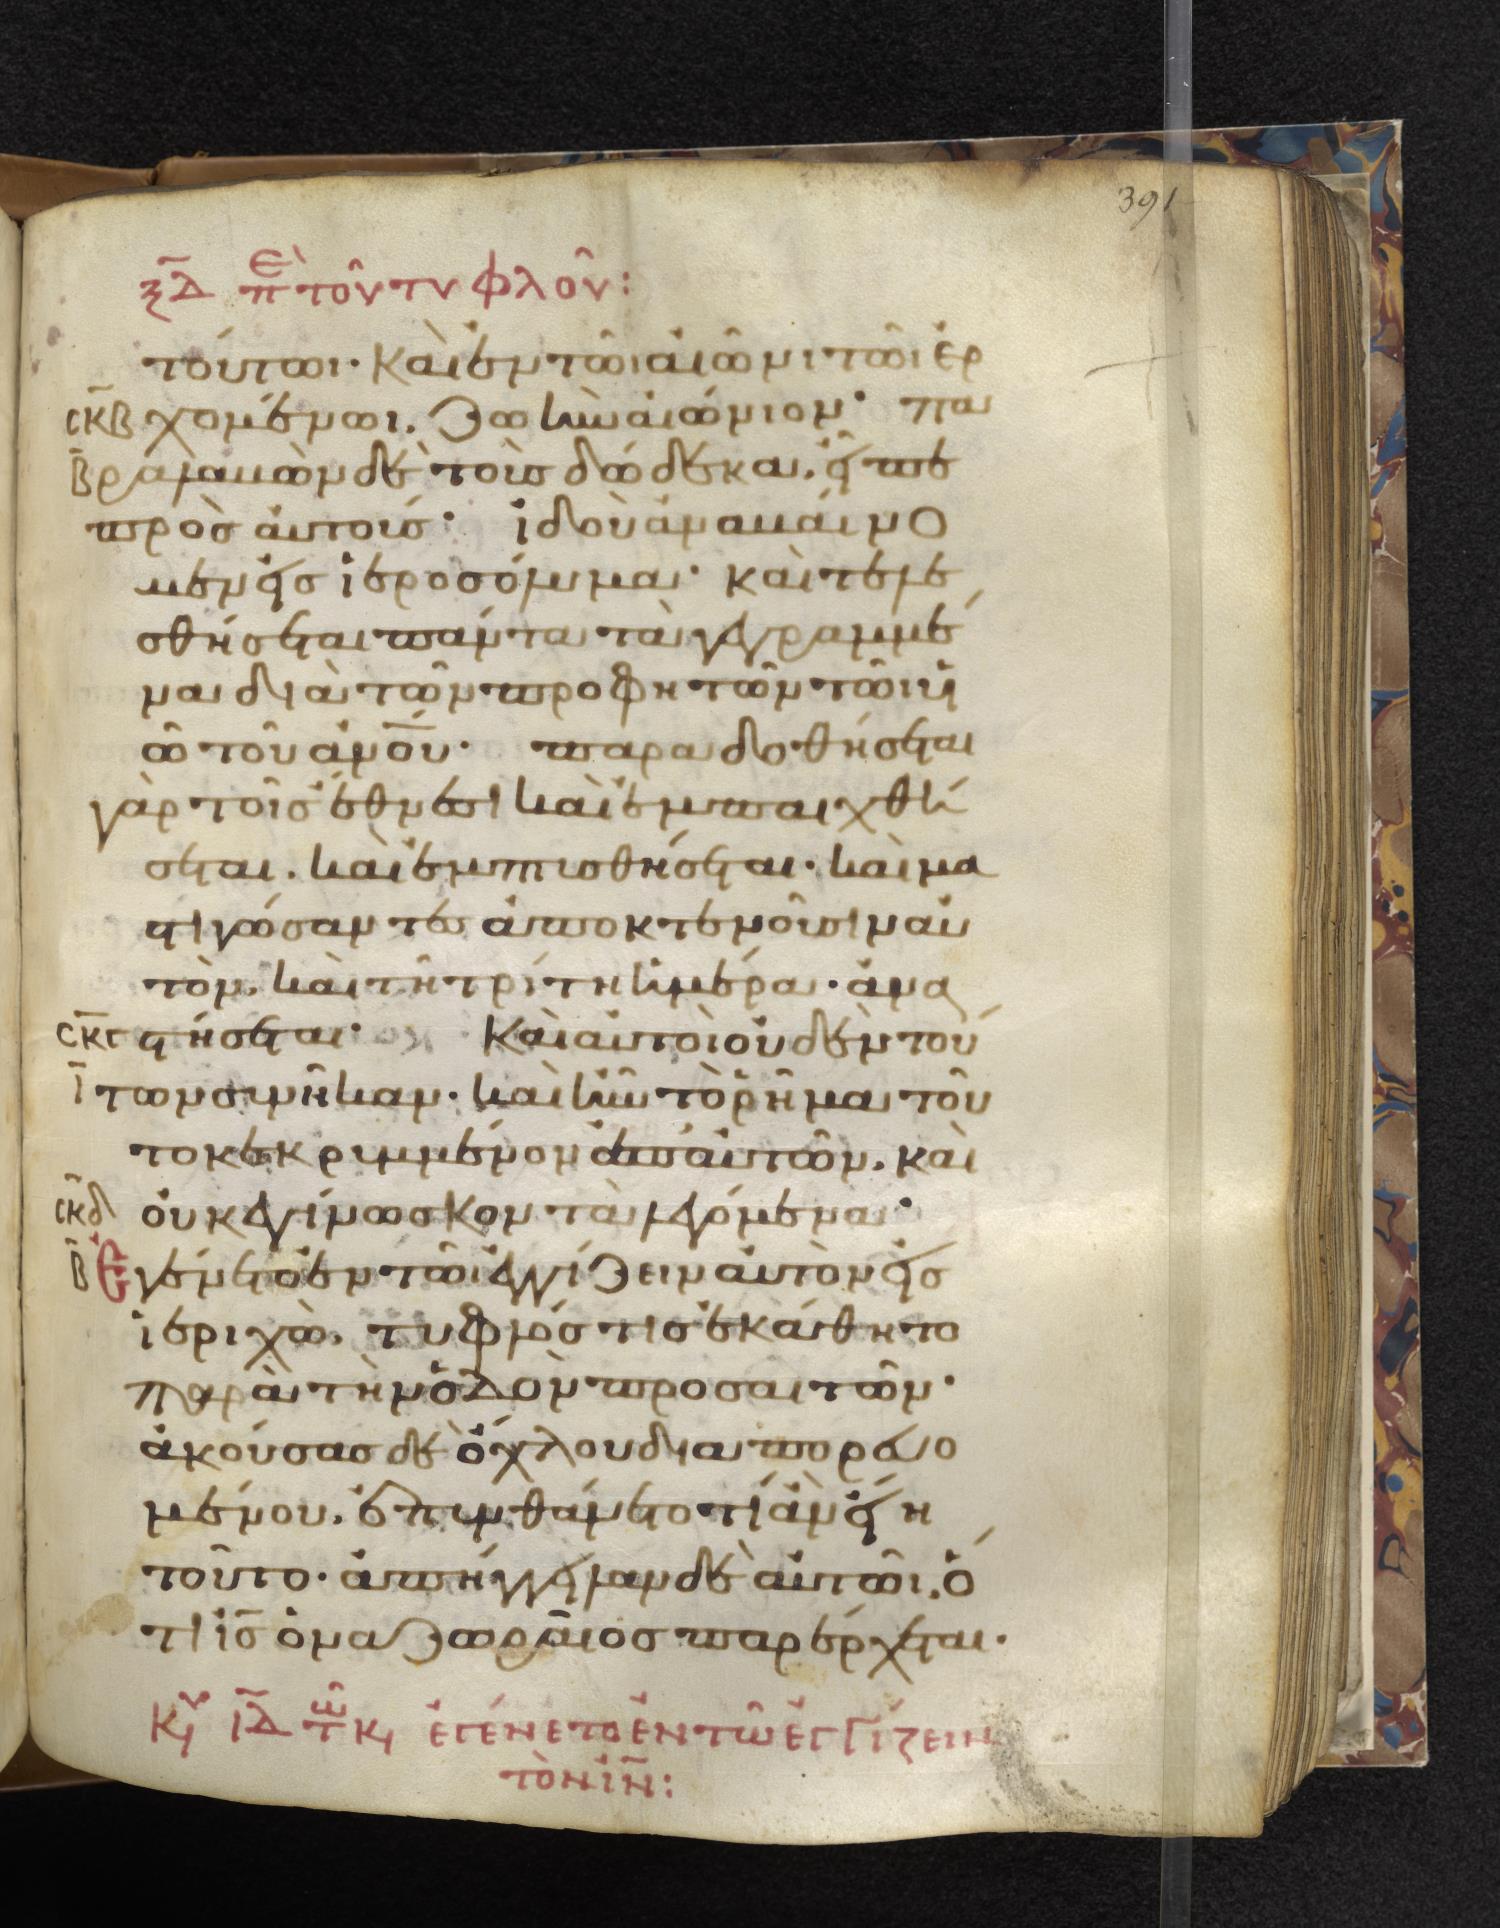 391
ξ̅δ̅ ἐπ̀ τοῦ τυφλοῦ:
τούτωι· καὶ ἐν τῶι αἰῶνι τῶι ἐρ
σκ̅β̅ χομένωι. ζωὴν αἰώνιον· πα
β̅ ραλαβὼν δὲ τοὺς δώδεκα. εἶπε
πρὸς αὐτούς· ἰδοὺ ἀναβαίνο
μεν εἰς ἱεροσόλυμα· καὶ τελε
σθήσεται πάντα τὰ γεγραμμέ
να διὰ τῶν προφητῶν τῶι υἱ
ῶ τοῦ α̅ν̅ο̅υ̅· παραδοθήσεται
γὰρ τοῖς ἔθνεσι καὶ ἐμπαιχθή
σεται. καὶ ἐμπτυσθήσεται· καὶ μα
στιγώσαντες ἀποκτενοῦσιν αὐ
τόν. καὶ τῆ τρίτη ἡμέρα· ἀνα
σκ̅γ̅ στήσεται· Καὶ αὐτοὶ οὐδὲν τού
ι̅ των συνῆκαν· καὶ ἦν τὸ ῥῆμα τοῦ
το κεκρυμμένον ἀπ' αὐτῶν. καὶ
σκ̅δ̅ οὐκ ἐγίνωσκον τὰ λεγόμενα·
β̅ Ἐγένετο ἐν τῶι ἐγγίζειν αὐτὸν εἰς
ἱεριχώ. τυφλός τις ἐκάθητο
παρὰ τὴν ὁδὸν προσαιτῶν·
ἀκούσας δὲ ὄχλου διαπορευο
μένου. ἐπυνθάνετο τί ἂν εἴη
τοῦτο· ἀπήγγειλαν δὲ αὐτῶι. ὅ
τι ι̅ς̅ ὁ ναζωραῖος παρέρχεται·
Κυ ι̅δ̅ τῶ κ, ἐγένετο ἐν τῶ ἐγγίζειν
τὸν ι̅ν̅: